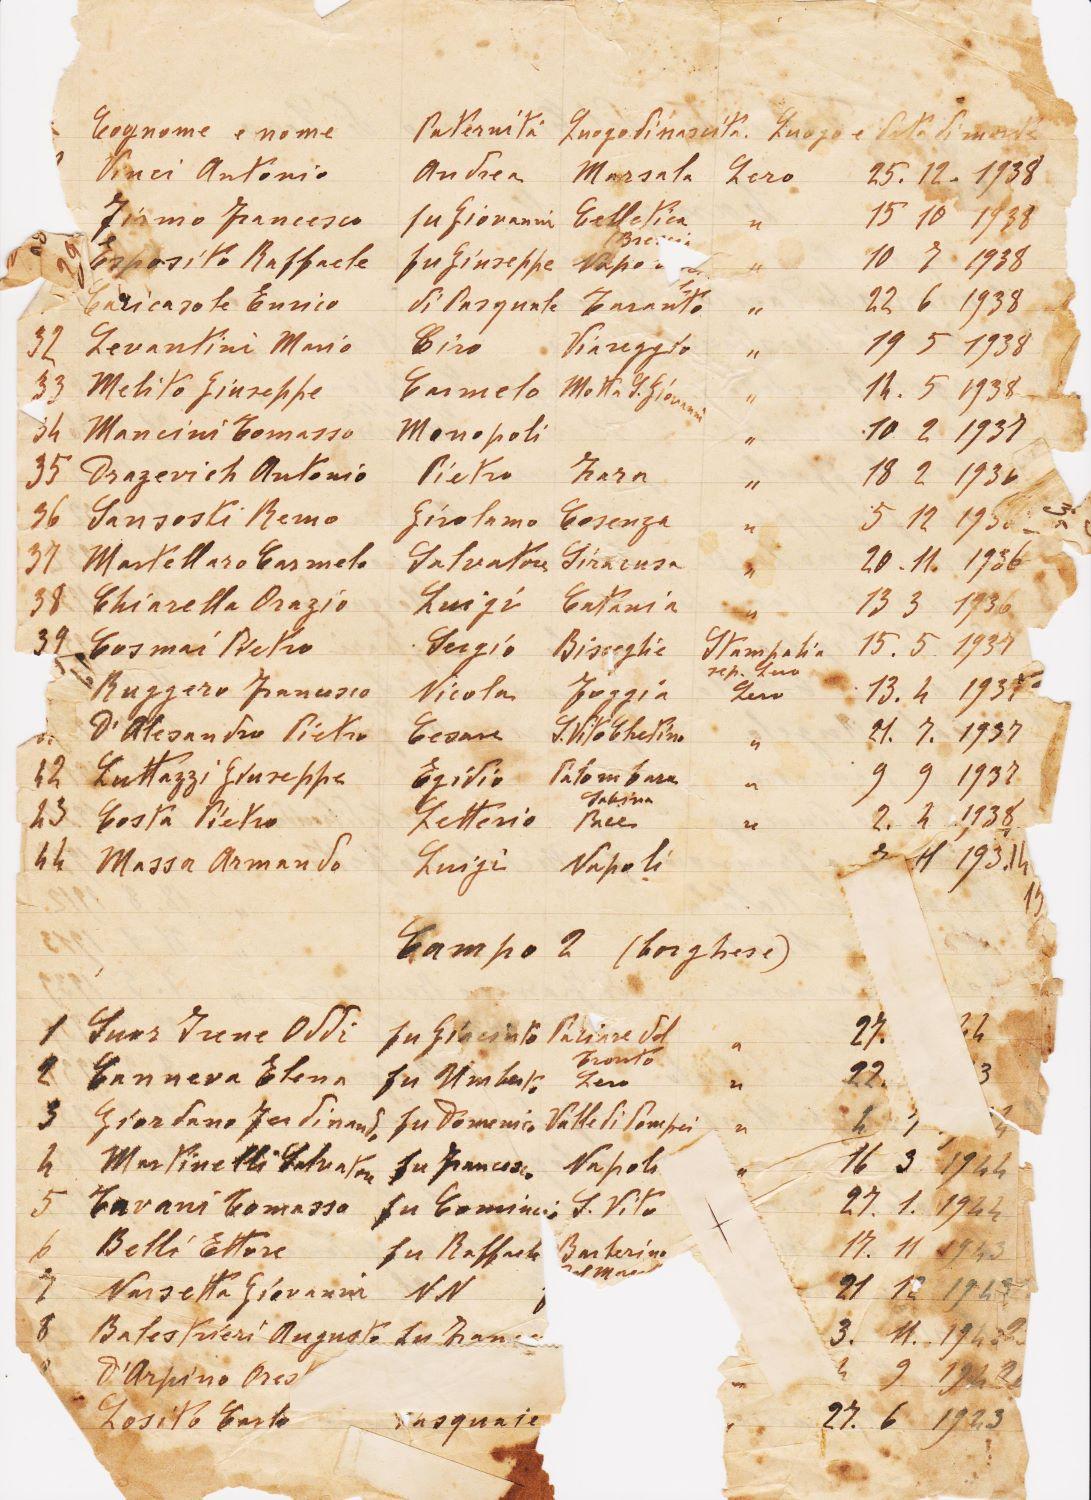 Cognome e nome Paternità Luogo di nascita. Luogo e data di morte
Vinci Antonio Andrea Marsala Lero 25. 12. 1938
Firmo Francesco fu Giovanni Cellatica " 15 10 1938
Brescia
29 Esposito Raffaele fu Giuseppe " 10 7 1938
Caricasole Enrico di Pasquale Taranto " 22 6 1938
32 Levantini Mario Ciro Viareggio " 19 5 1938
33 Melito Giuseppe Carmelo Motta S. Giovanni " 14. 5 1938
34 Mancini Tomasso Monopoli " 10 2 1937
35 Drazevich Antonio Pietro Zara " 18 2 1936
36 Sansosti Remo Girolamo Cosenza " 5 12 1936
37 Martellaro Carmelo Salvatore Siracusa " 20. 11. 1936
38 Chiarella Orazio Luigi Catania " 13 3 1936
39 Cosmai Pietro Sergio Bisceglie Stampalia 15. 5 1937
sep. Lero
Ruggero Francesco Nicola Foggia Lero 13. 4 1937
D'Alesandro Pietro Cesare S. Vito Chetino " 21. 7. 1937
42 Luttazzi Giuseppe Egidio Palombara " 9 9 1937
Sabina
43 Costa Pietro Letterio Pace " 2. 4 1938
44 Massa Armando Luigi Napoli 11 193
Campo 2 (borghese)
1 Suor Irene Oddi fu Giacinto del " 27. 44
Tronto
2 Canneva Elena fu Umberto Lero " 22. 3
3 Giordano Ferdinando fu Domenico Valle di Pompei " 4
4 Martinelli Salvatore fu Francesco Napoli " 16 3 1944
5 Tavani Tomasso fu S. Vito 27. 1. 1944
6 Belli Ettore fu Raffaele Barberino 17. 11 1943
del
7 Narsetta Giovanni NN 21 12 1943
8 Balestrieri Augusto fu Franc 3. 11. 1942
D'Arpino Ores " 4 9 1942
Losito Carlo Pasquale " 27. 6 1923